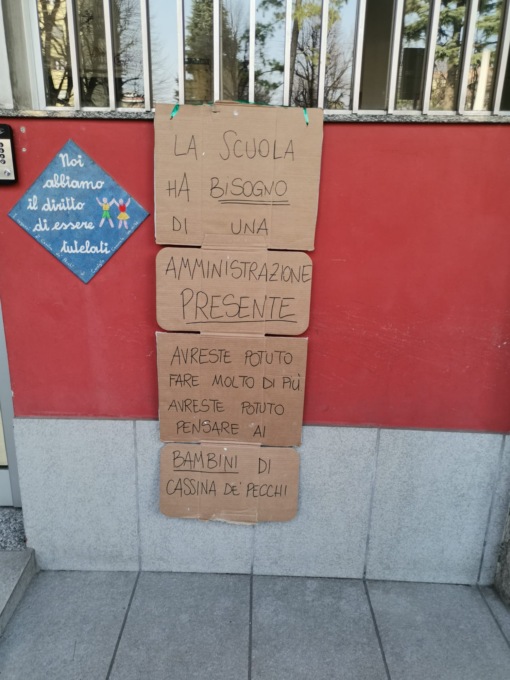 Noi
abbiamo
il diritto
di essere
tutelati
LA SCUOLA
HA BISOGNO
DI UNA
AMMINISTRAZIONE
PRESENTE
AVRESTE POTUTO
FARE MOLTO DI PIÙ
AVRESTE POTUTO
PENSARE AI
BAMBINI DI
CASSINA DE' PECCHI